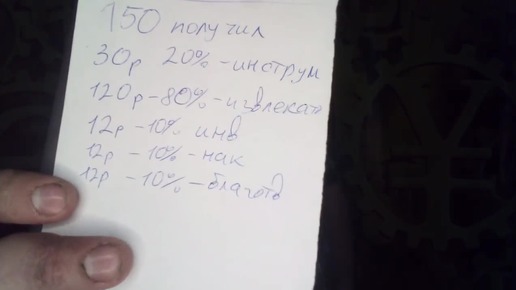 150 получил
30р 20% -инструм
120р -80% -извлекат
12р -10% инв
12р -10% -нак
12р -10% -благотв